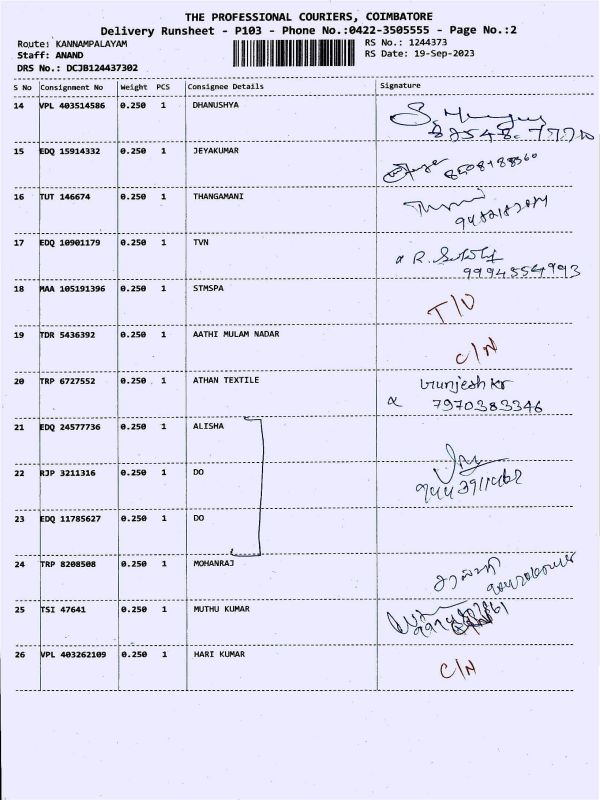 THE PROFESSIONAL COURIERS, COIMBATORE
Delivery Runsheet - P103 - Phone No.:0422-3505555 - Page No.:2
Route: KANNAMPALAYAM RS No.: 1244373
Staff: ANAND RS Date: 19-Sep-2023
DRS No.: DCJB124437302
S No Consignment No Weight PCS Consignee Details Signature
14 VPL 403514586 0.250 1 DHANUSHYA
15 EDQ 15914332 0.250 1 JEYAKUMAR
16 TUT 146674 0.250 1 THANGAMANI
17 EDQ 10901179 0.250 1 TVN
18 MAA 105191396 0.250 1 STMSPA T/O
19 TDR 5436392 0.250 1 AATHI MULAM NADAR C/N
20 TRP 6727552 0.250 1 ATHAN TEXTILE
7970383346
21 EDQ 24577736 0.250 1 ALISHA
22 RJP 3211316 0.250 1 DO
23 EDQ 11785627 0.250 1 DO
24 TRP 8208508 0.250 1 MOHANRAJ
25 TSI 47641 0.250 1 MUTHU KUMAR
26 VPL 403262109 0.250 1 HARI KUMAR C/N